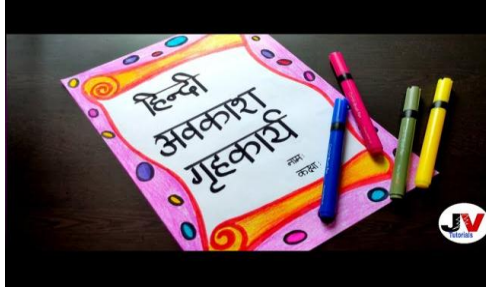 हिन्दी
अवकाश
गृहकार्य
नाम:
कक्षा:
JV
Tutorials